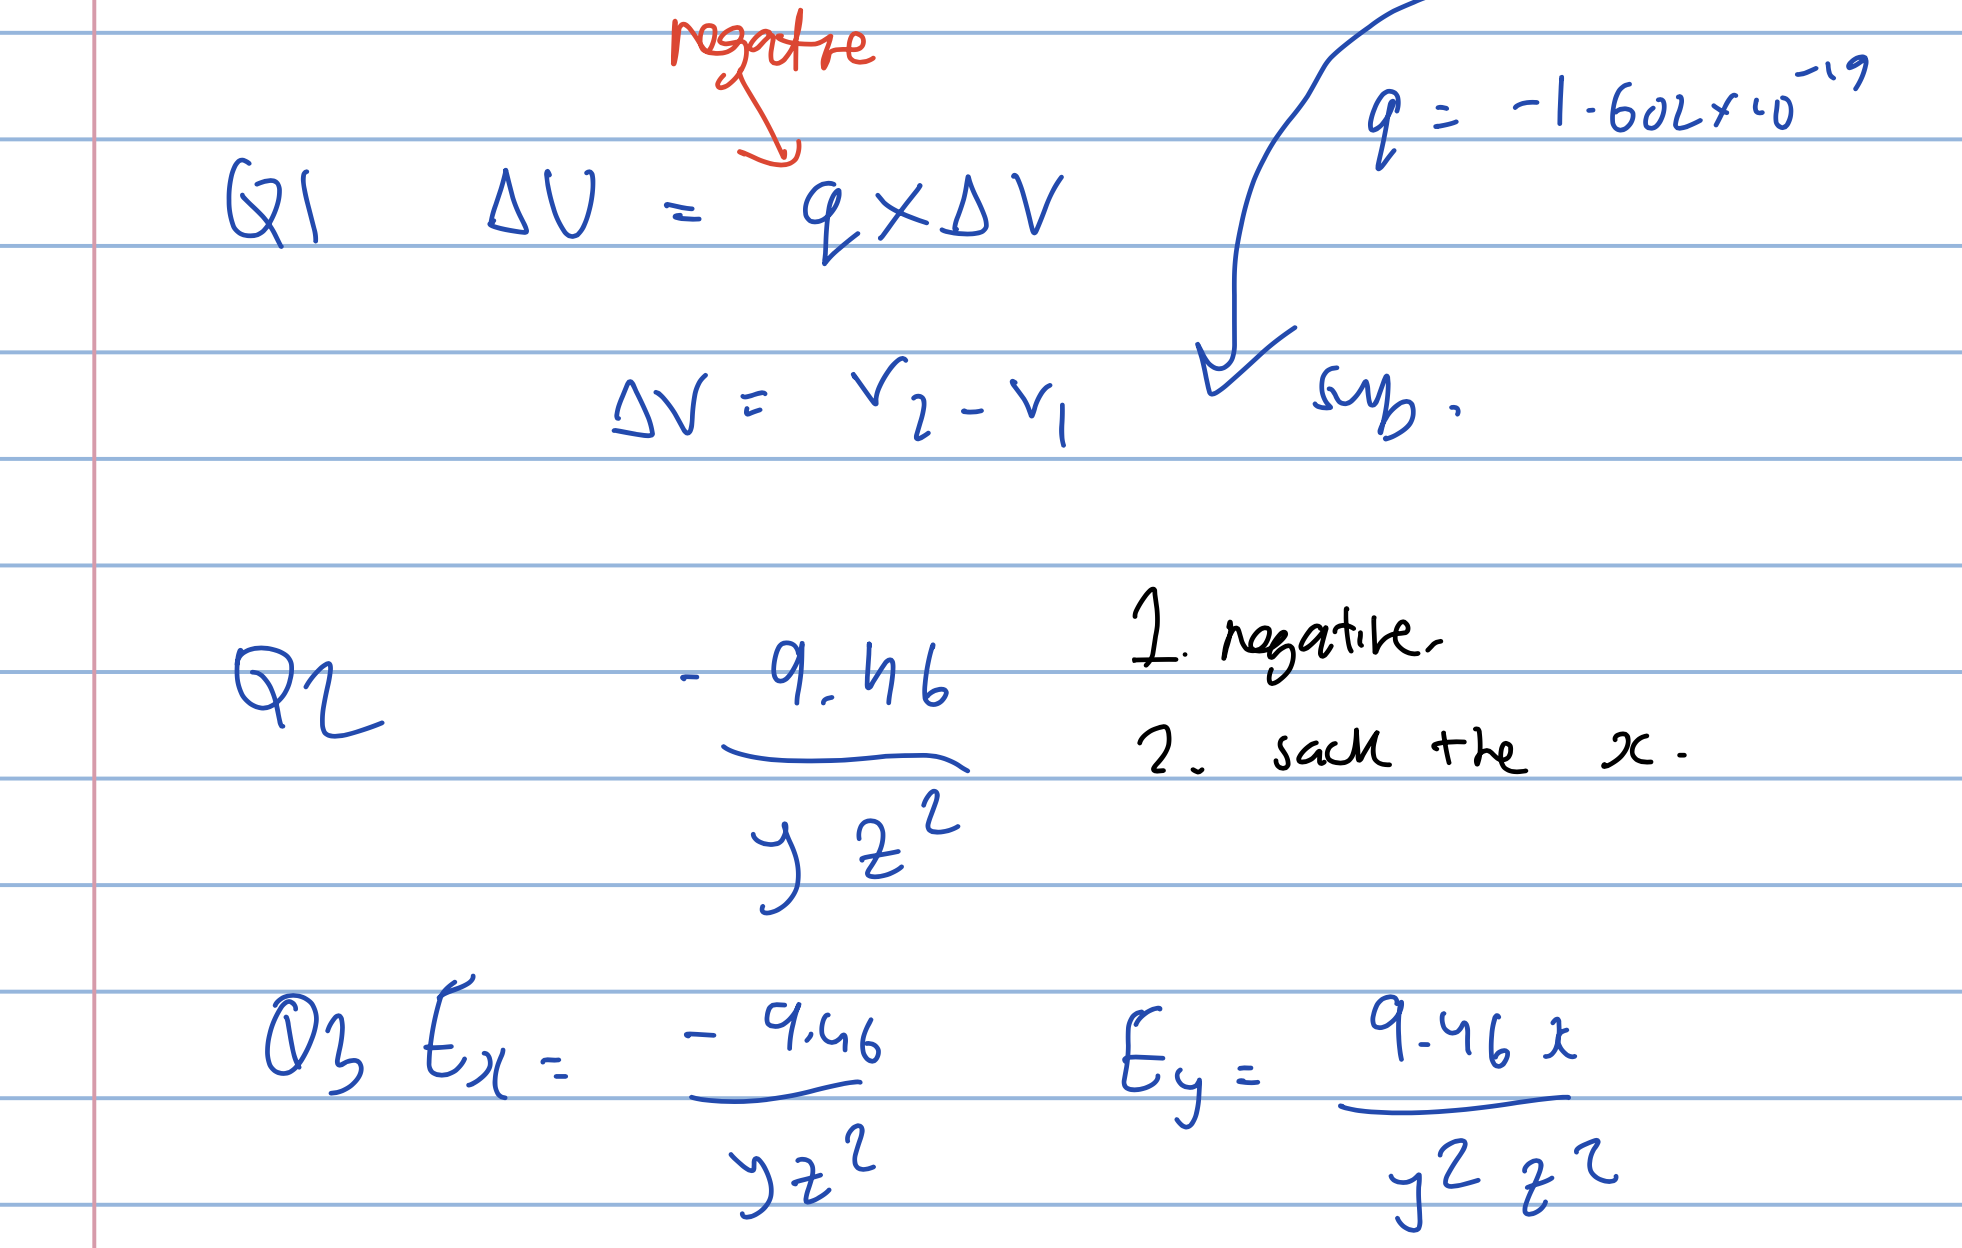 negative
q = -1.602×10^-19
Q1 ΔU = q × ΔV
ΔV = V₂ - V₁ sub.
Q2 - 9.46 / y z²
1. negative.
2. sack the x.
Q3 Eₓ = - 9.46 / y z² E_y = 9.46 x / y² z²